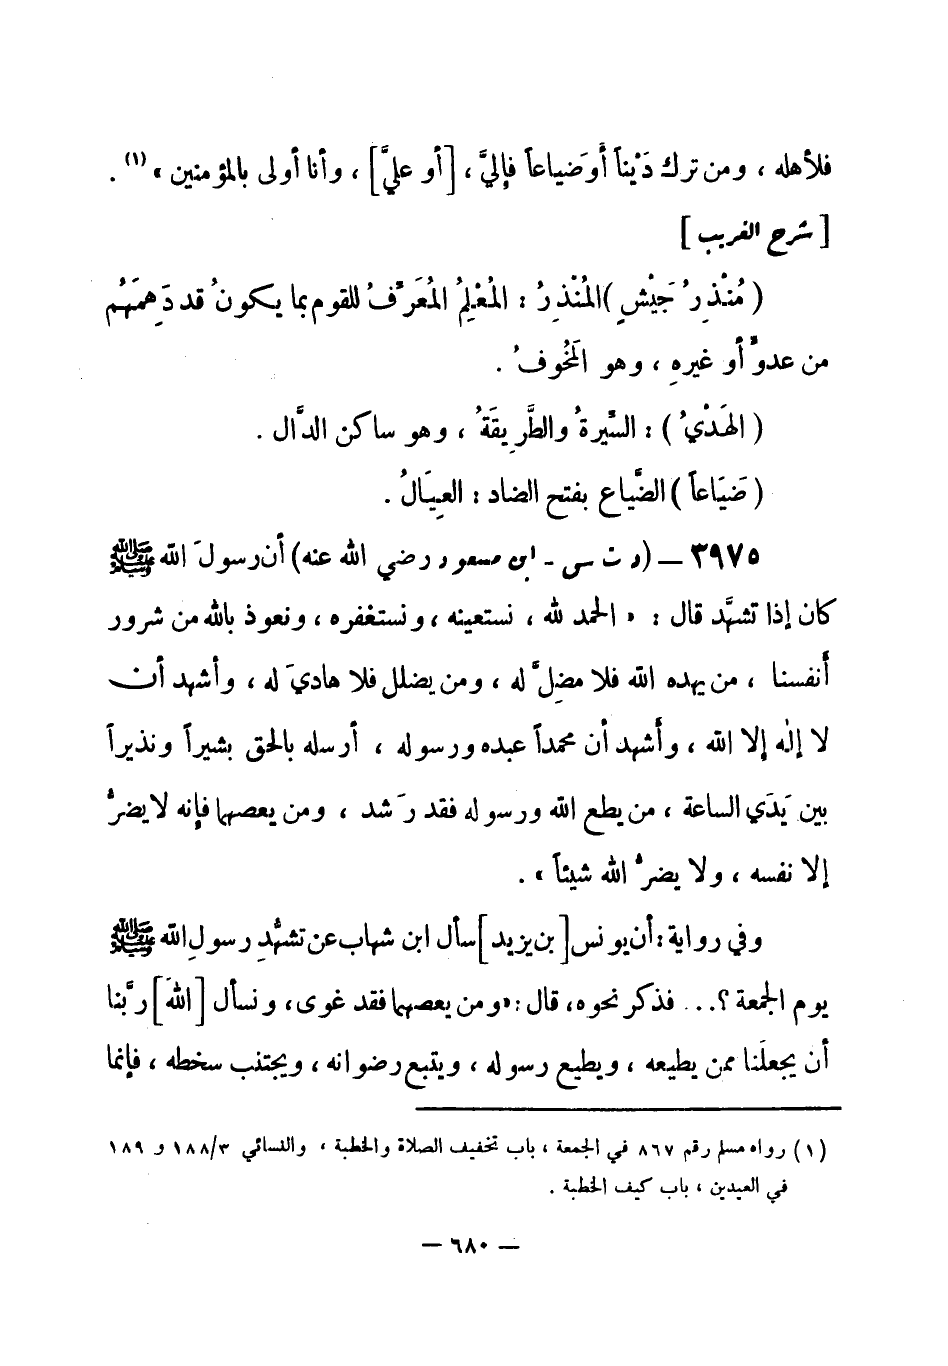 فلأهله ، ومن ترك دَيْناً أَو ضَياعاً فإليَّ ، [أو عليَّ] ، وأنا أولى بالمؤمنين » (١) .
[ شرح الغريب ]
( مُنْذِرُ جَيْشٍ ) المُنْذِرُ : المُعْلِمُ المُعَرِّفُ للقوم بما يكونُ قد دَهِمَهُم
من عدوٍّ أو غيرهِ ، وهو المَخُوفُ .
( الهَدْيُ ) : السِّيرةُ والطَّرِيقَةُ ، وهو ساكن الدَّال .
( ضَيَاعاً ) الضَّياع بفتح الضاد : العِيَالُ .
٣٩٧٥ – (د ت س - ابن مسعود رضي الله عنه) أن رسولَ الله ﷺ
كان إذا تشهَّد قال : « الحمد لله ، نستعينه ، ونستغفره ، ونعوذ بالله من شرور
أنفسنا ، من يهده الله فلا مضِلَّ له ، ومن يضلل فلا هاديَ له ، وأشهد أن
لا إله إلا الله ، وأشهد أن محمداً عبده ورسوله ، أرسله بالحق بشيراً ونذيراً
بين يَدَي الساعة ، من يطع الله ورسوله فقد رَشد ، ومن يعصهما فإنه لا يضرُّ
إلا نفسه ، ولا يضرُّ الله شيئاً » .
وفي رواية : أن يونس [ بن يزيد ] سأل ابن شهاب عن تشهُّدِ رسولِ الله ﷺ
يوم الجمعة ؟ ... فذكر نحوه ، قال : « ومن يعصهما فقد غوى ، ونسأل [اللهَ] ربَّنا
أن يجعلَنا ممن يطيعه ، ويطيع رسوله ، ويتبع رضوانه ، ويجتنب سخطه ، فإنما
(١) رواه مسلم رقم ٨٦٧ في الجمعة ، باب تخفيف الصلاة والخطبة ، والنسائي ١٨٨/٣ و ١٨٩
في العيدين ، باب كيف الخطبة .
– ٦٨٠ –